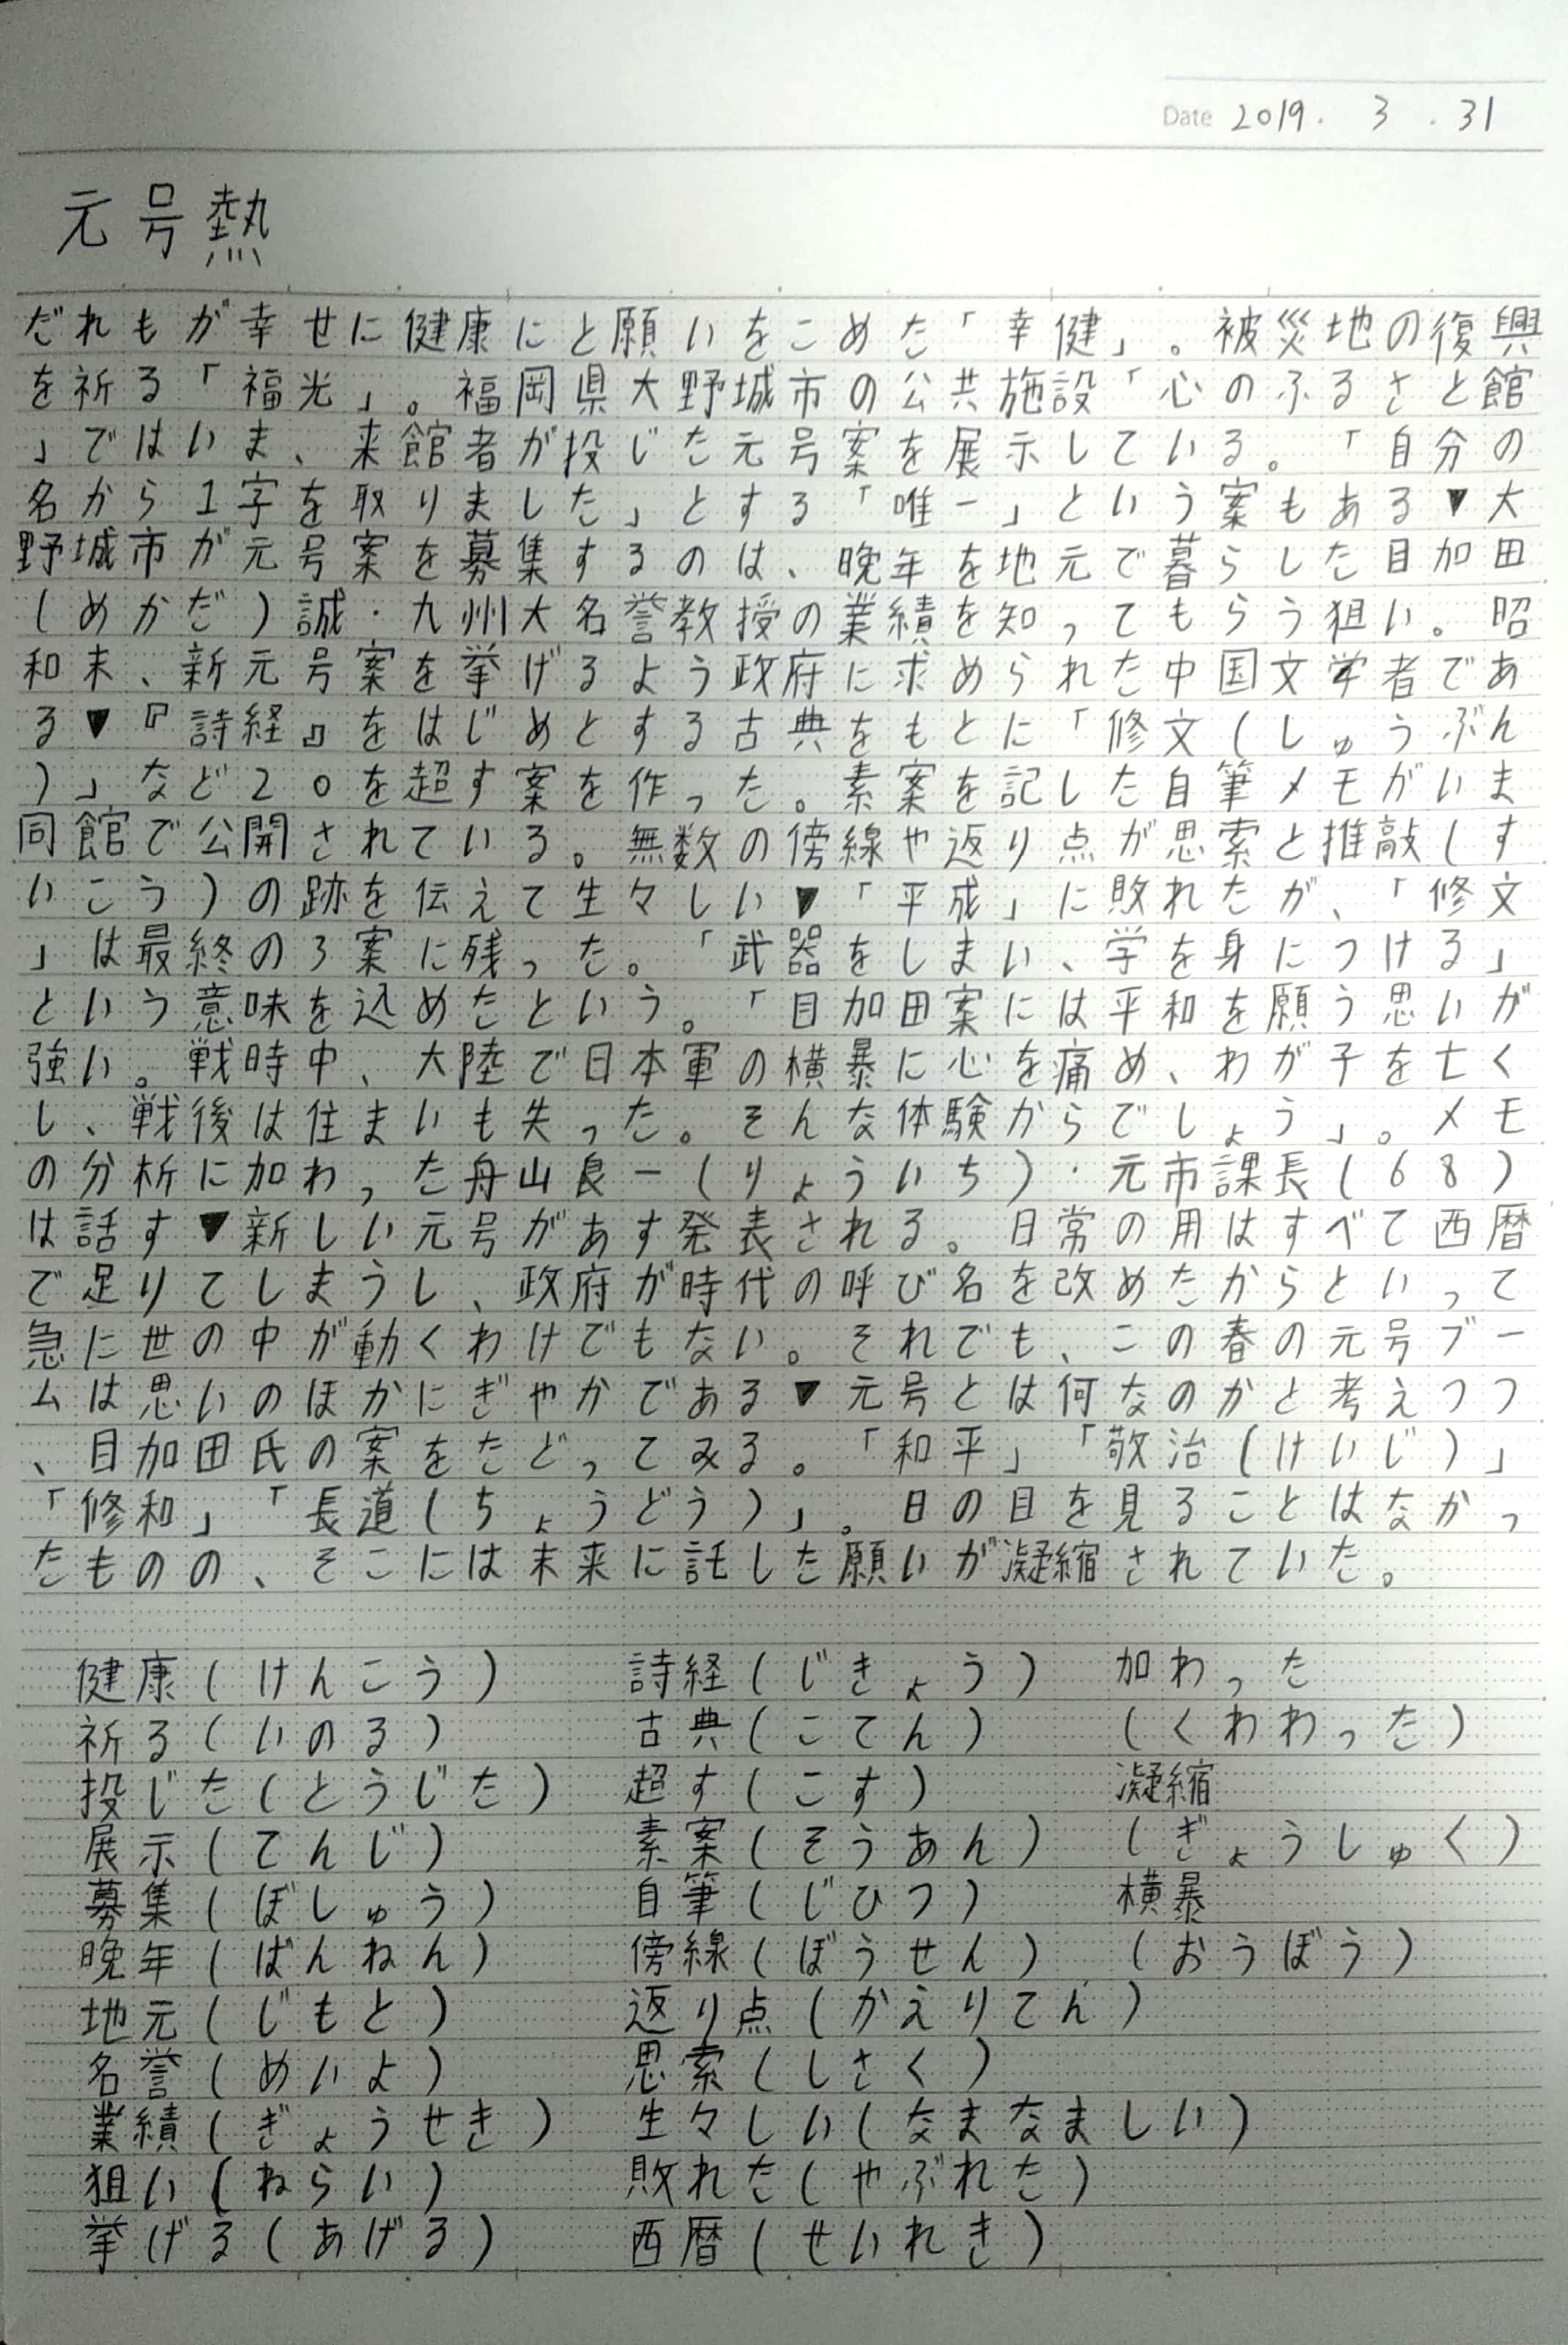 Date 2019. 3. 31
元号熱
だれもが幸せに健康にと願いをこめた「幸健」。被災地の復興
を祈る「福光」。福岡県大野城市の公共施設「心のふるさと館
」ではいま、来館者が投じた元号案を展示している。「自分の
名から1字を取りました」とする「唯一」という案もある▼大
野城市が元号案を募集するのは、晩年を地元で暮らした目加田
(めかだ)誠・九州大名誉教授の業績を知ってもらう狙い。昭
和末、新元号案を挙げるよう政府に求められた中国文学者であ
る▼『詩経』をはじめとする古典をもとに「修文(しゅうぶん
)」など20を超す案を作った。素案を記した自筆メモがいま
同館で公開されている。無数の傍線や返り点が思索と推敲(す
いこう)の跡を伝えて生々しい▼「平成」に敗れたが、「修文
」は最終の3案に残った。「武器をしまい、学を身につける」
という意味を込めたという。「目加田案には平和を願う思いが
強い。戦時中、大陸で日本軍の横暴に心を痛め、わが子を亡く
し、戦後は住まいも失った。そんな体験からでしょう」。メモ
の分析に加わった舟山良一(りょういち)・元市課長(68)
は話す▼新しい元号があす発表される。日常の用はすべて西暦
で足りてしまうし、政府が時代の呼び名を改めたからといって
急に世の中が動くわけでもない。それでも、この春の元号ブー
ムは思いのほかにぎやかである▼元号とは何なのかと考えつつ
、目加田氏の案をたどってみる。「和平」「敬治(けいじ)」
「修和」「長道(ちょうどう)」。日の目を見ることはなかっ
たものの、そこには未来に託した願いが凝縮されていた。
健康(けんこう)
祈る(いのる)
投じた(とうじた)
展示(てんじ)
募集(ぼしゅう)
晩年(ばんねん)
地元(じもと)
名誉(めいよ)
業績(ぎょうせき)
狙い(ねらい)
挙げる(あげる)
詩経(じきょう)
古典(こてん)
超す(こす)
素案(そうあん)
自筆(じひつ)
傍線(ぼうせん)
返り点(かえりてん)
思索(しさく)
生々しい(なまなましい)
敗れた(やぶれた)
西暦(せいれき)
加わった
(くわわった)
凝縮
(ぎょうしゅく)
横暴
(おうぼう)